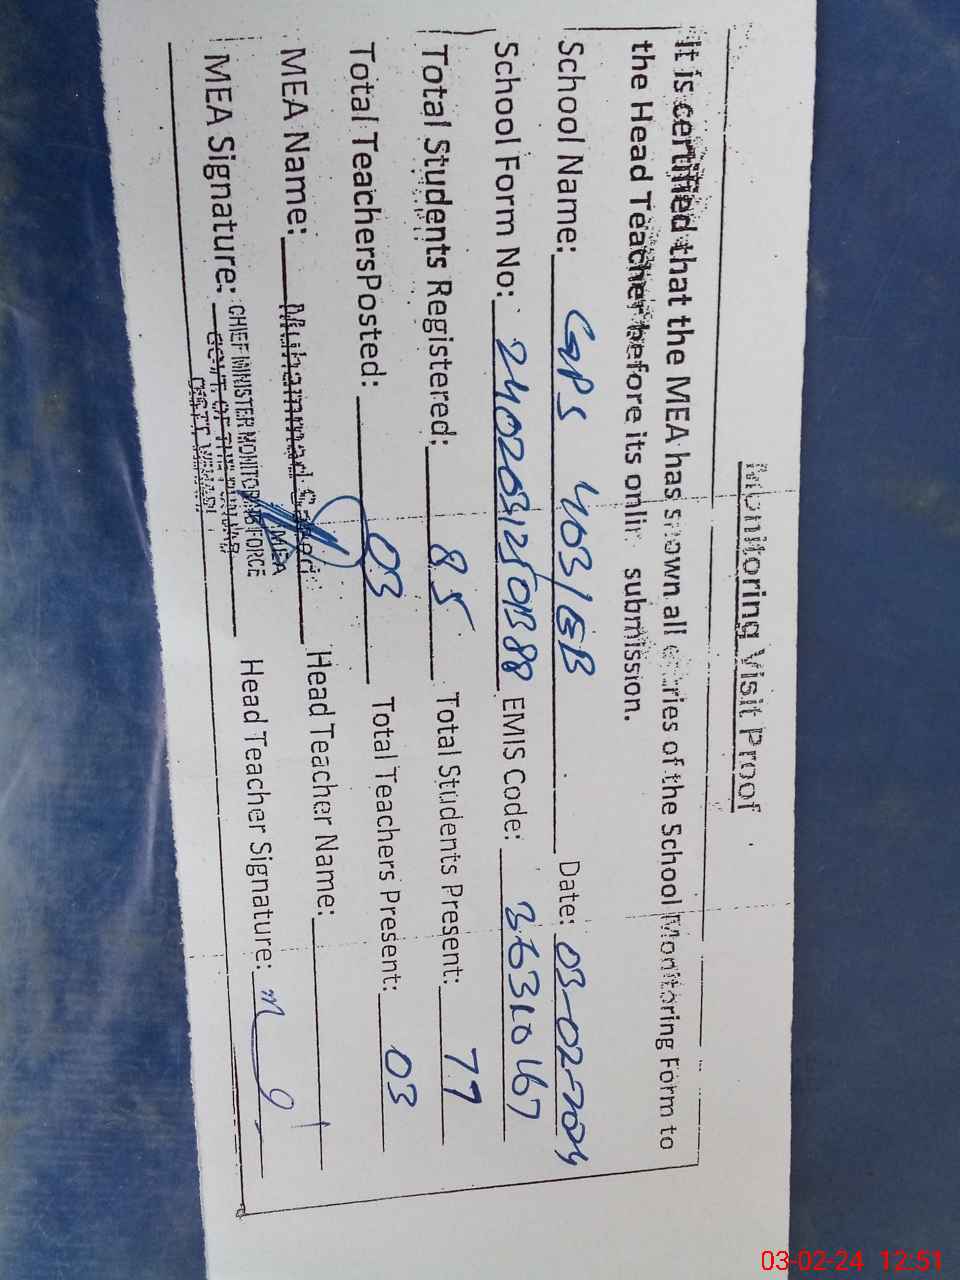 Monitoring Visit Proof
It is certified that the MEA has shown all entries of the School Monitoring Form to
the Head Teacher before its online submission.
School Name: GPS 403/EB Date: 03-02-2024
School Form No: EMIS Code: 36310167
Total Students Registered: 85 Total Students Present: 77
Total TeachersPosted: 03 Total Teachers Present: 03
MEA Name: Muhammad Head Teacher Name:
MEA
MEA Signature: Head Teacher Signature:
CHIEF MINISTER MONITORING FORCE
GOVT. OF THE PUNJAB
DISTT. VEHARI
03-02-24 12:51